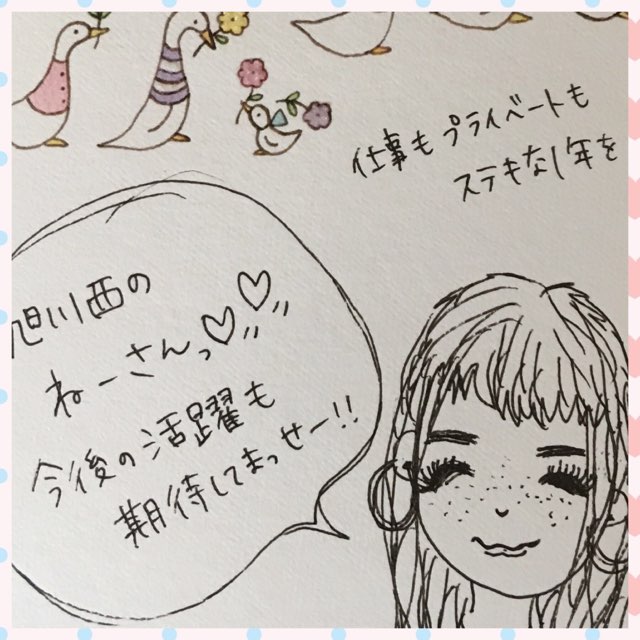 仕事もプライベートも
ステキな1年を
旭川西の
ねーさんっ♡♡〃
今後の活躍も
期待してまっせー!!